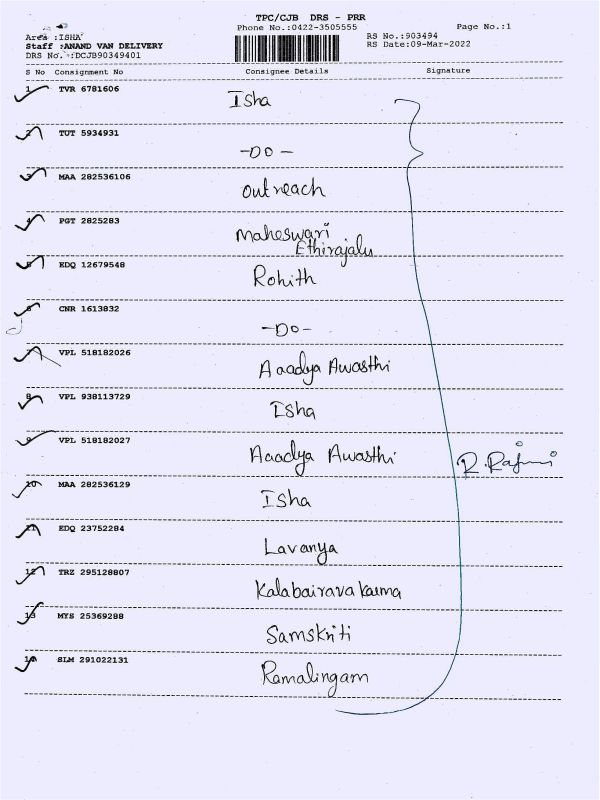 TPC/CJB DRS - PRR
Phone No.:0422-3505555
Page No.:1
Area :ISHA
Staff :ANAND VAN DELIVERY
DRS No. :DCJB90349401
RS No.:903494
RS Date:09-Mar-2022
S No Consignment No Consignee Details Signature
1 TVR 6781606 Isha
2 TUT 5934931 -DO-
3 MAA 282536106 outreach
4 PGT 2825283 Maheswari
Ethirajalu
5 EDQ 12679548 Rohith
6 CNR 1613832 -DO-
7 VPL 518182026 Aaadya Awasthi
8 VPL 938113729 Isha
9 VPL 518182027 Aaadya Awasthi R.Rajini
10 MAA 282536129 Isha
11 EDQ 23752284 Lavanya
12 TRZ 295128807 Kalabairava karma
13 MYS 25369288 Samskriti
14 SLM 291022131 Ramalingam